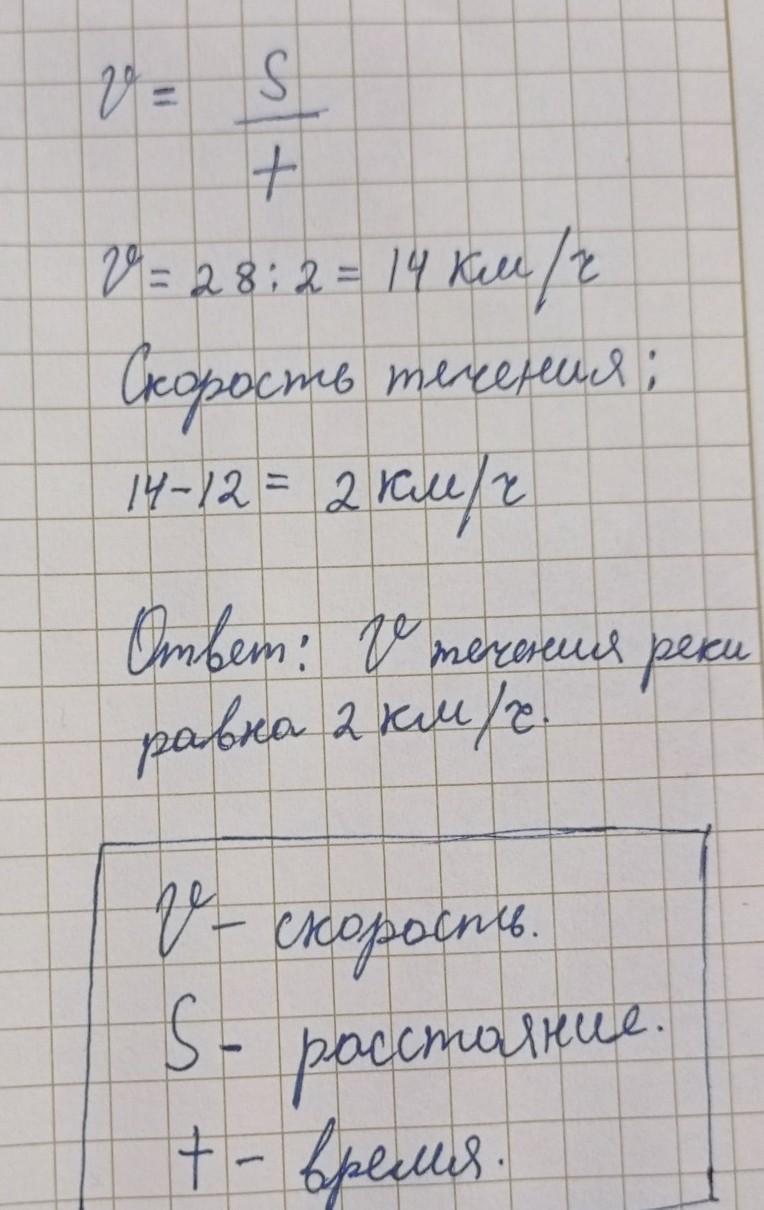 V = S
t
V = 28 : 2 = 14 км/ч
Скорость течения:
14-12 = 2 км/ч
Ответ: V течения реки
равна 2 км/ч.
V - скорость.
S - расстояние.
t - время.